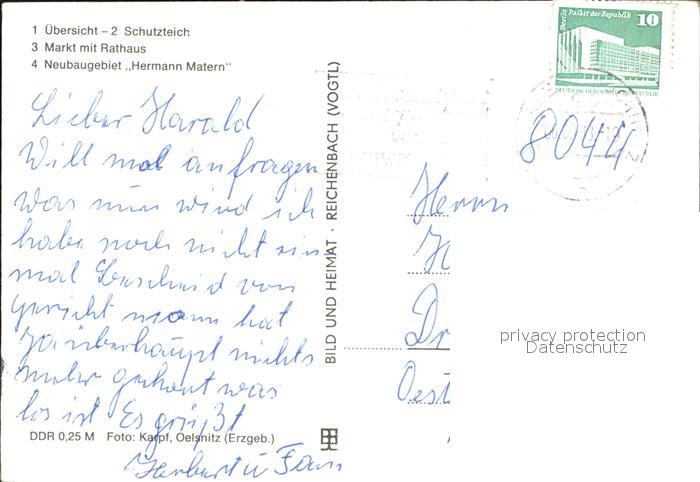 1 Übersicht – 2 Schutzteich
3 Markt mit Rathaus
4 Neubaugebiet „Hermann Matern"
Lieber Harald
Will mal anfragen
was nun wird ich
habe noch nicht ein
mal Bescheid von
gericht mann hat
ja überhaupt nichts
mehr gehört was
los ist Es grüßt
Herbert u
DDR 0,25 M Foto: Karpf, Oelsnitz (Erzgeb.)
BILD UND HEIMAT · REICHENBACH (VOGTL)
Berlin Palast der Republik
10
DEUTSCHE DEMOKRATISCHE REPUBLIK
8044
Herrn
H
Dr
Oest
privacy protection
Datenschutz